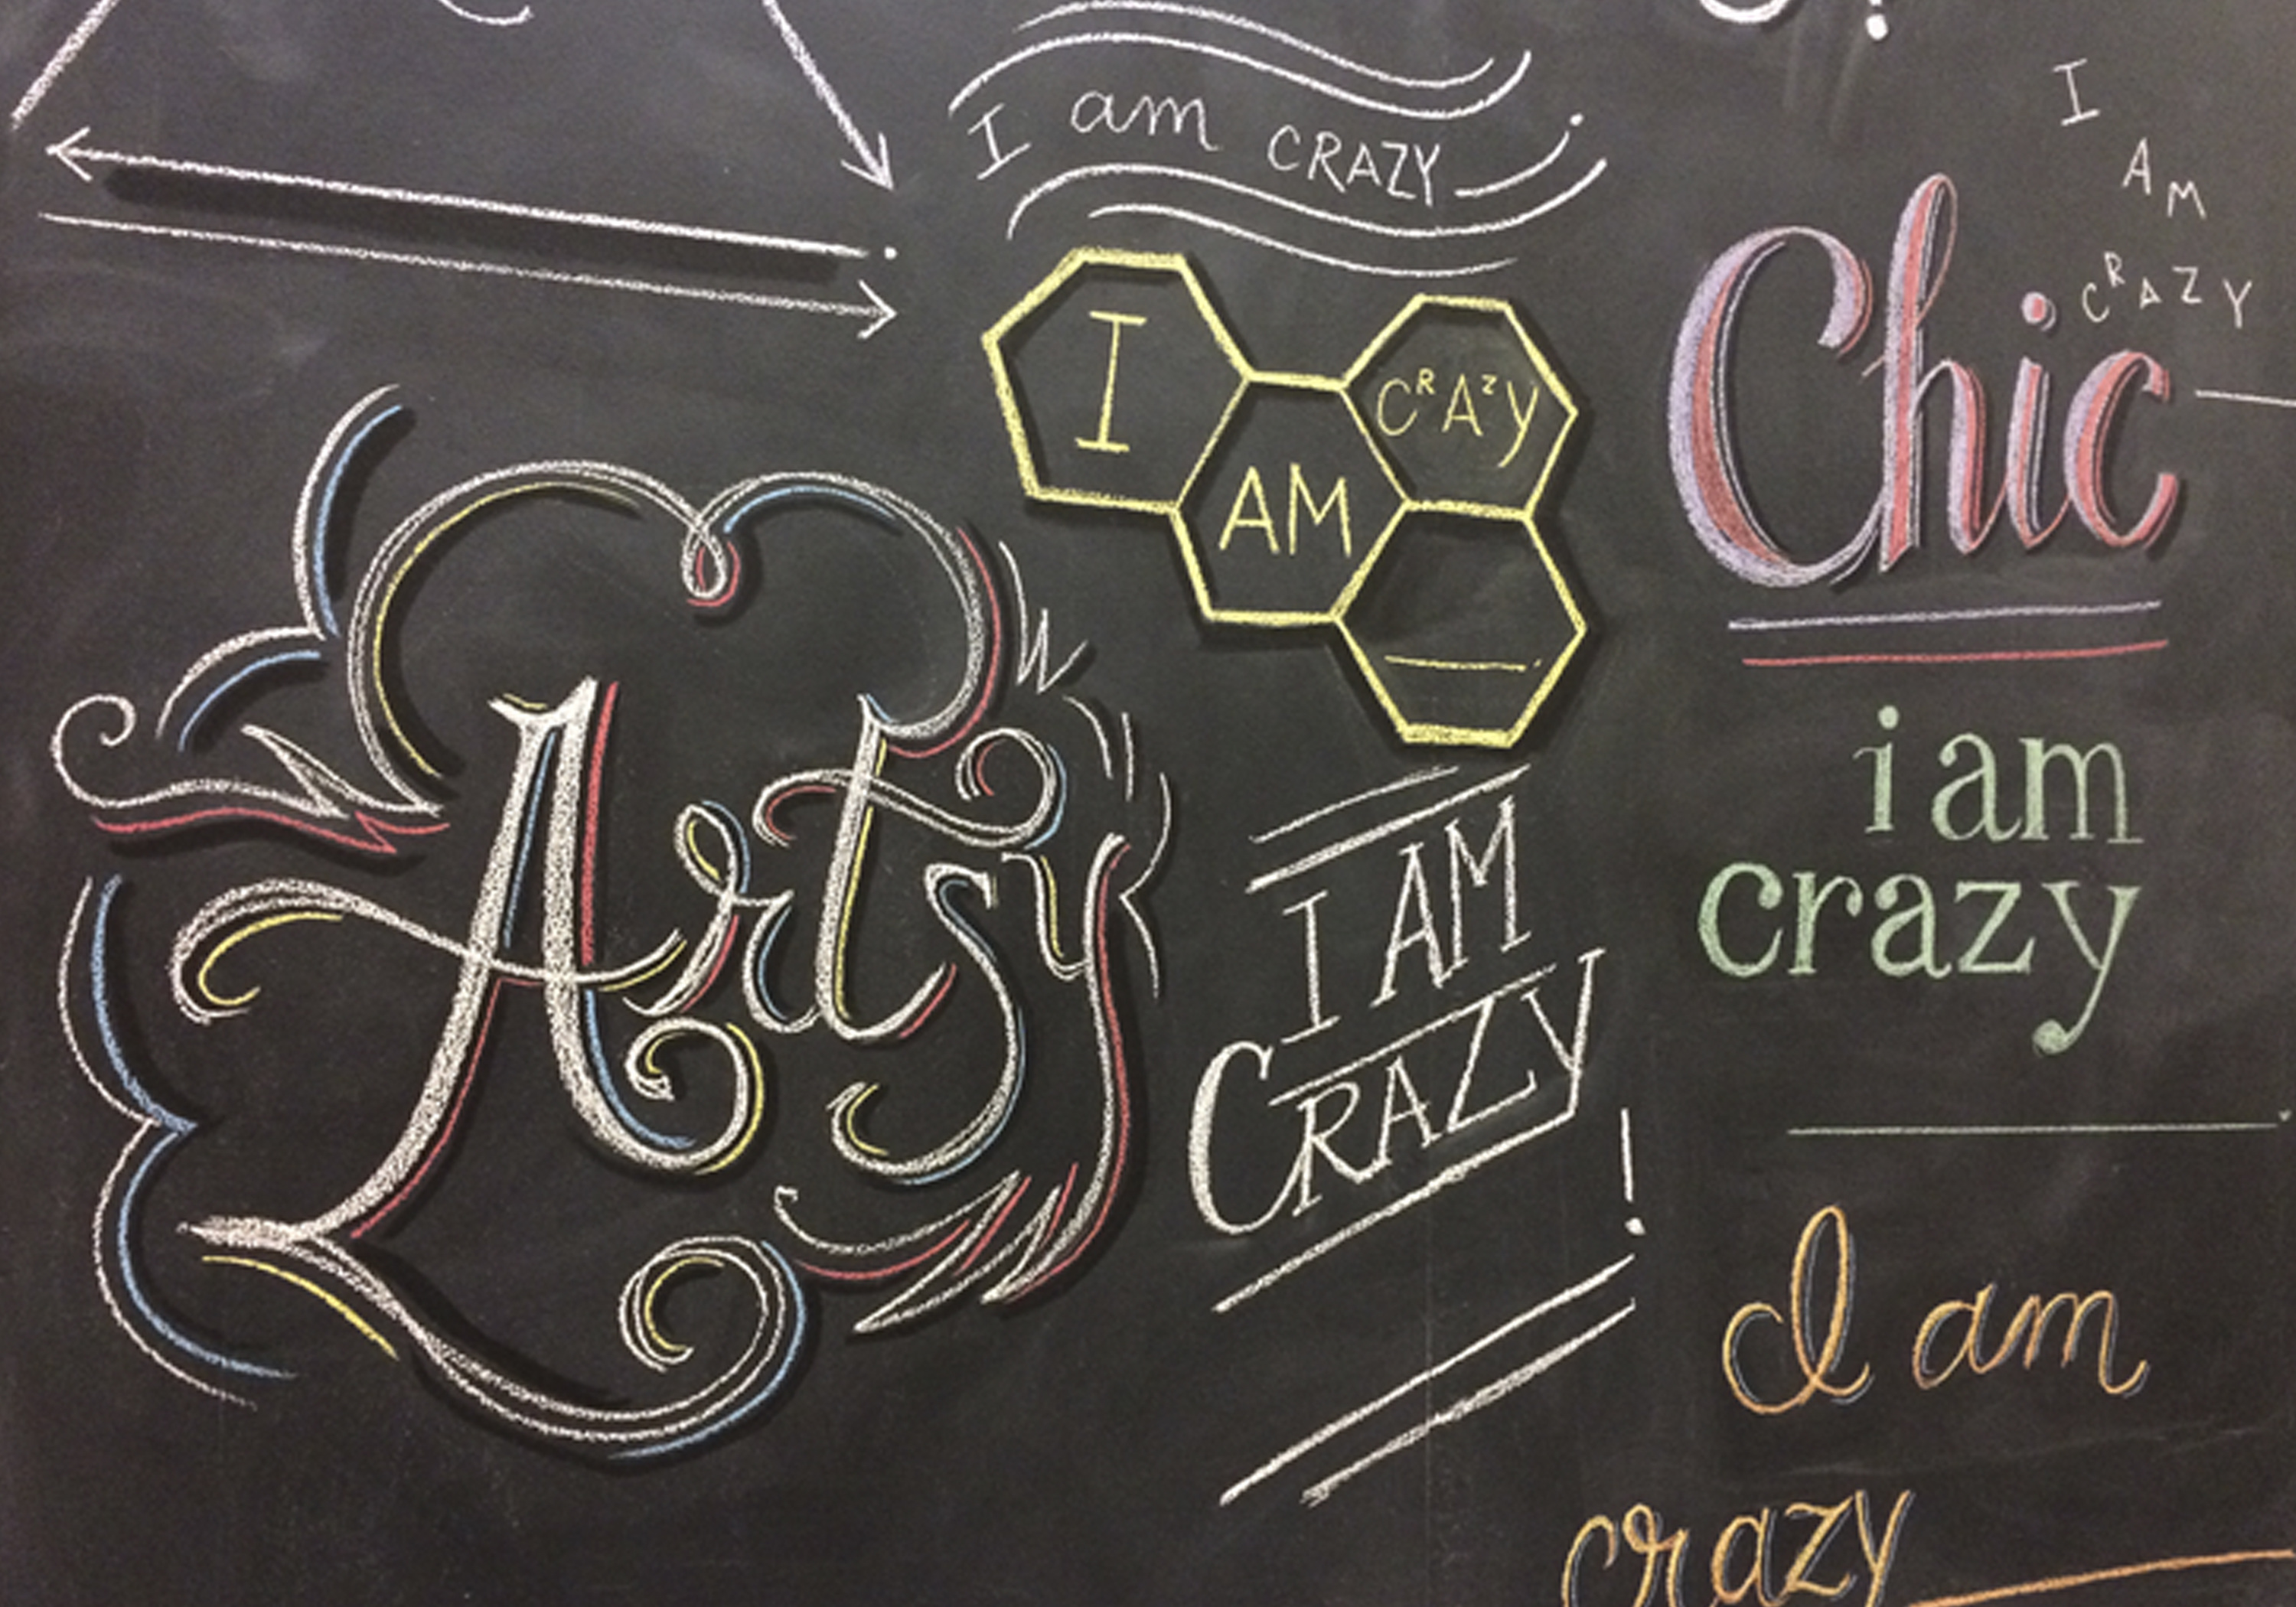 I am CRAZY
I
AM
CRAZY
I
AM
CRAZY
Chic
Artsy
i am
crazy
I AM
CRAZY!
I am
crazy